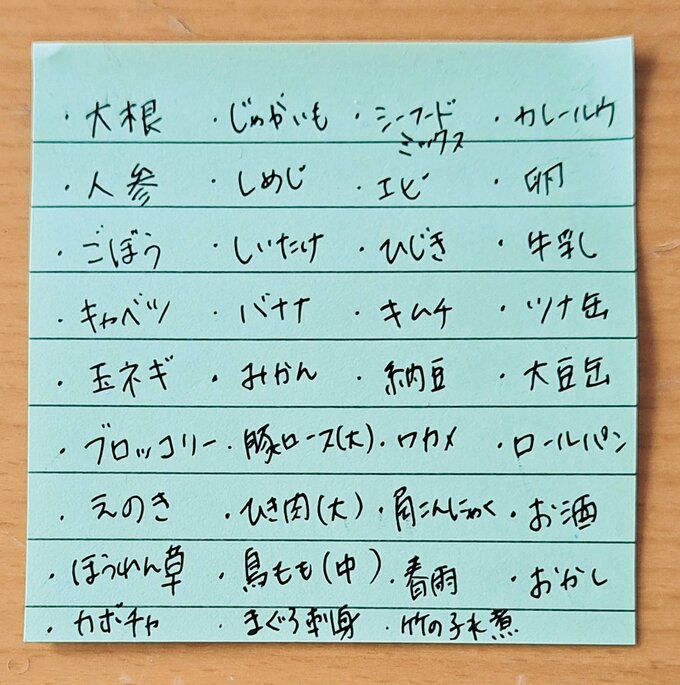 ・大根 ・じゃがいも ・シーフードミックス ・カレールウ
・人参 ・しめじ ・エビ ・卵
・ごぼう ・しいたけ ・ひじき ・牛乳
・キャベツ ・バナナ ・キムチ ・ツナ缶
・玉ネギ ・みかん ・納豆 ・大豆缶
・ブロッコリー ・豚ロース(大) ・ワカメ ・ロールパン
・えのき ・ひき肉(大) ・角こんにゃく ・お酒
・ほうれん草 ・鳥もも(中) ・春雨 ・おかし
・カボチャ ・まぐろ刺身 ・竹の子水煮